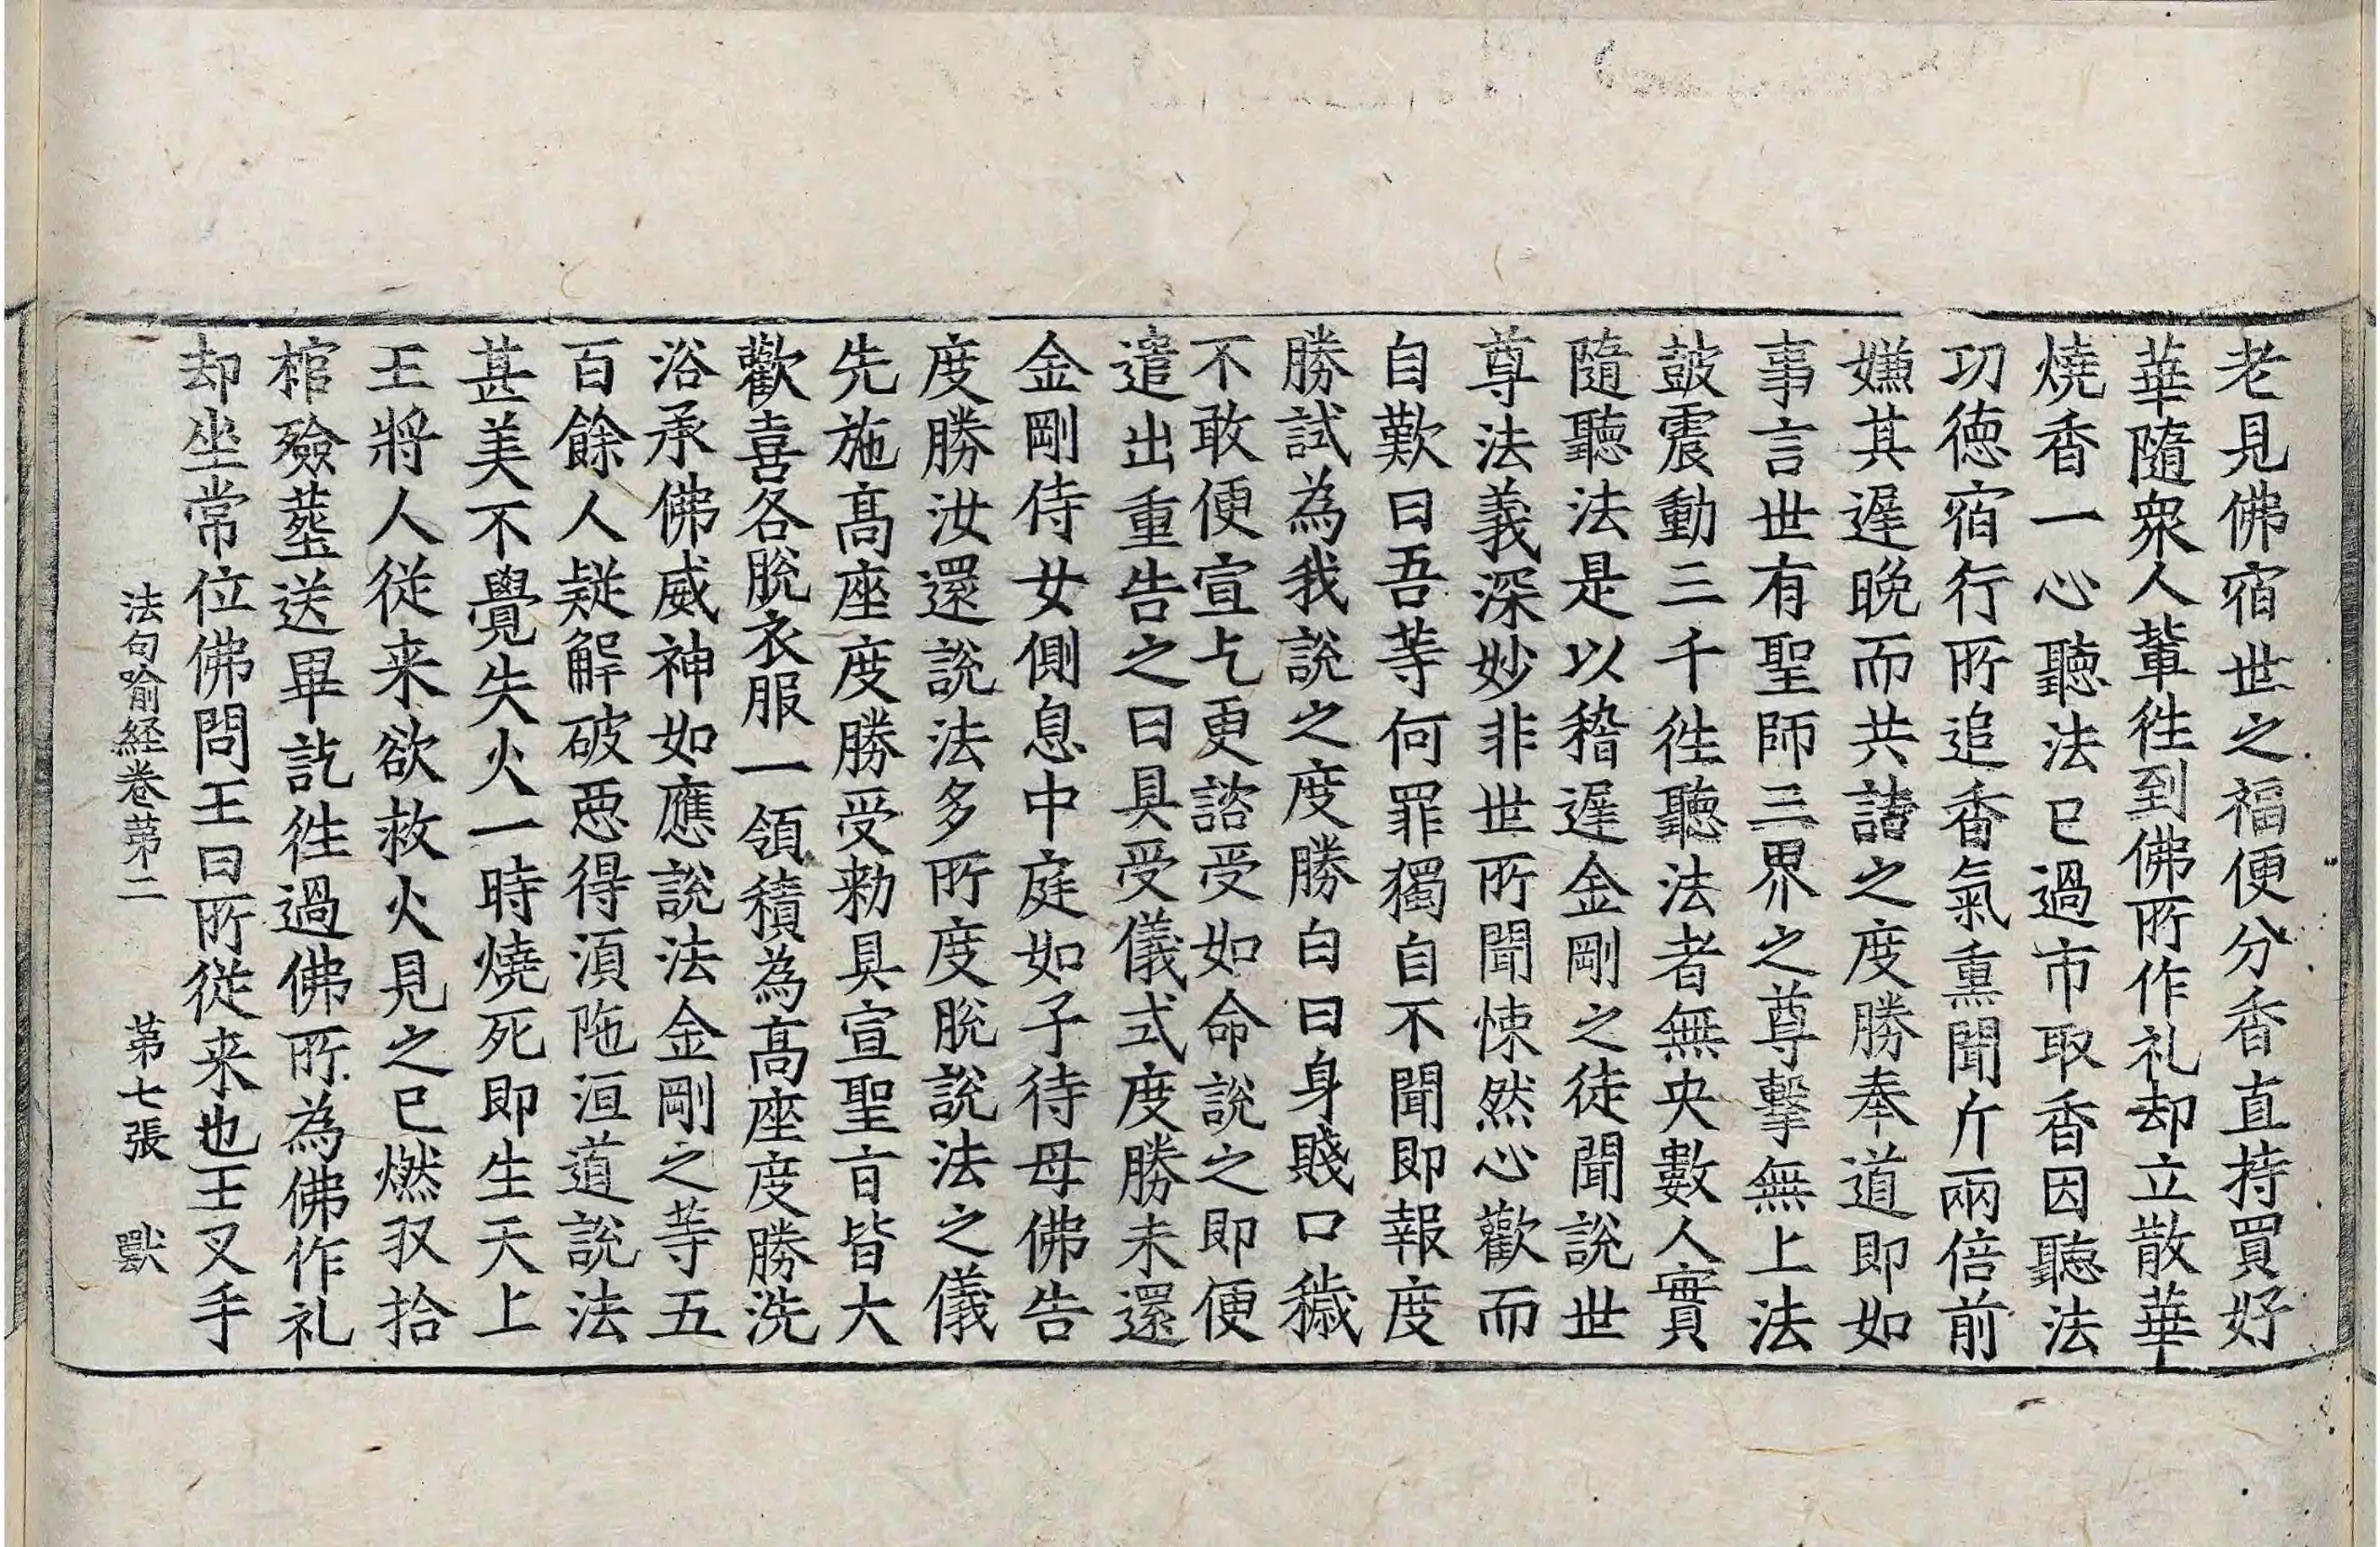 老見佛宿世之福便分香直持買好
華隨衆人輩徃到佛所作礼却立散華
燒香一心聽法已過市取香因聽法
功德宿行所追香氣熏聞斤兩倍前
嫌其遲晚而共譸之度勝奉道即如
事言世有聖師三界之尊擊無上法
鼓震動三千徃聽法者無央數人實
隨聽法是以稽遲金剛之徒聞說世
尊法義深妙非世所聞悚然心歡而
自歎曰吾等何罪獨自不聞即報度
勝試為我說之度勝白曰身賤口穢
不敢便宣乞更諮受如命說之即便
遣出重告之曰具受儀式度勝未還
金剛侍女側息中庭如子待母佛告
度勝汝還說法多所度脫說法之儀
先施高座度勝受勑具宣聖㫖皆大
歡喜各脫衣服一領積為高座度勝洗
浴承佛威神如應說法金剛之等五
百餘人疑解破惡得湏陁洹道說法
甚美不覺失火一時燒死即生天上
王將人從来欲救火見之已燃収拾
棺殮葬送畢訖徃過佛所為佛作礼
却坐常位佛問王曰所從来也王叉手
法句喻経卷苐二　苐七張　獸